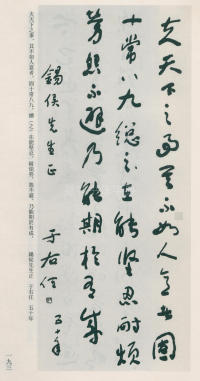 夫天下之事其不如人意者固
十常八九總之在能堅忍耐煩
勞怨不避乃能期於有成
錫侯先生正
于右任 五十年
夫天下之事,其不如人意者,固十常八九,總(之)在能堅忍耐煩,勞怨不避,乃能期於有成。 錫侯先生正 于右任 五十年
一九三